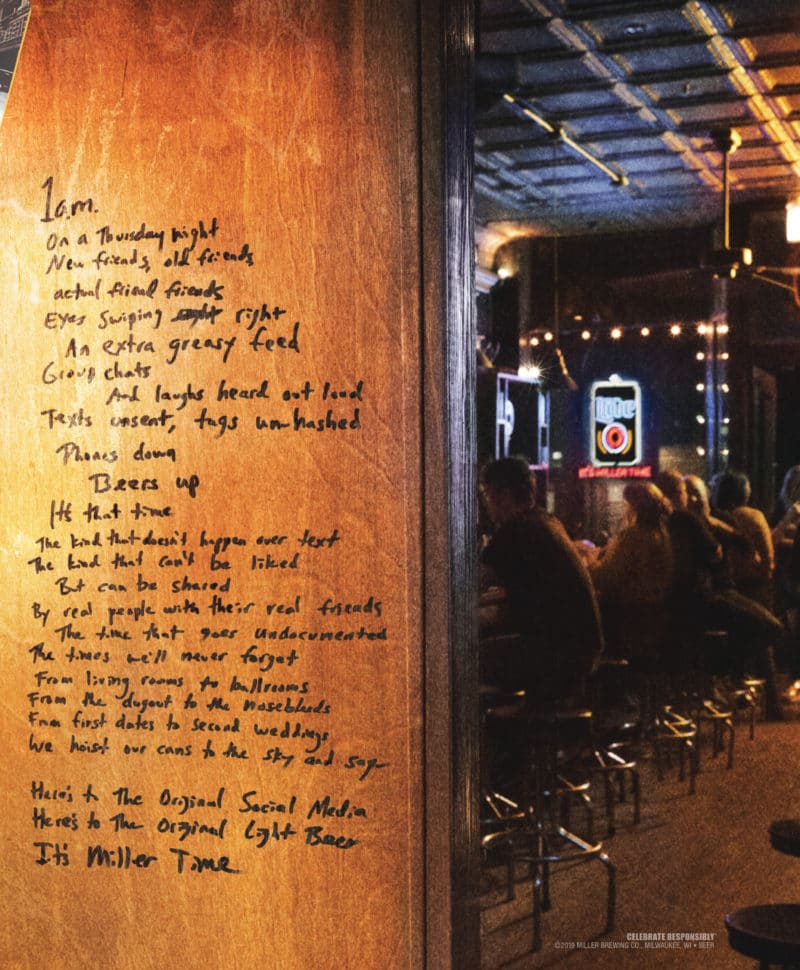 1am.
On a Thursday night
New friends, old friends
actual friend friends
Eyes swiping right
An extra greasy feed
Group chats
And laughs heard out loud
Texts unsent, tags un-hashed
Phones down
Beers up
It's that time
The kind that doesn't happen over text
The kind that can't be liked
But can be shared
By real people with their real friends
The time that goes undocumented
The times we'll never forget
From living rooms to ballrooms
From the dugout to the nosebleeds
From first dates to second weddings
We hoist our cans to the sky and say
Here's to The Original Social Media
Here's to The Original Light Beer
It's Miller Time
Lite
IT'S MILLER TIME
CELEBRATE RESPONSIBLY
©2019 MILLER BREWING CO., MILWAUKEE, WI • BEER